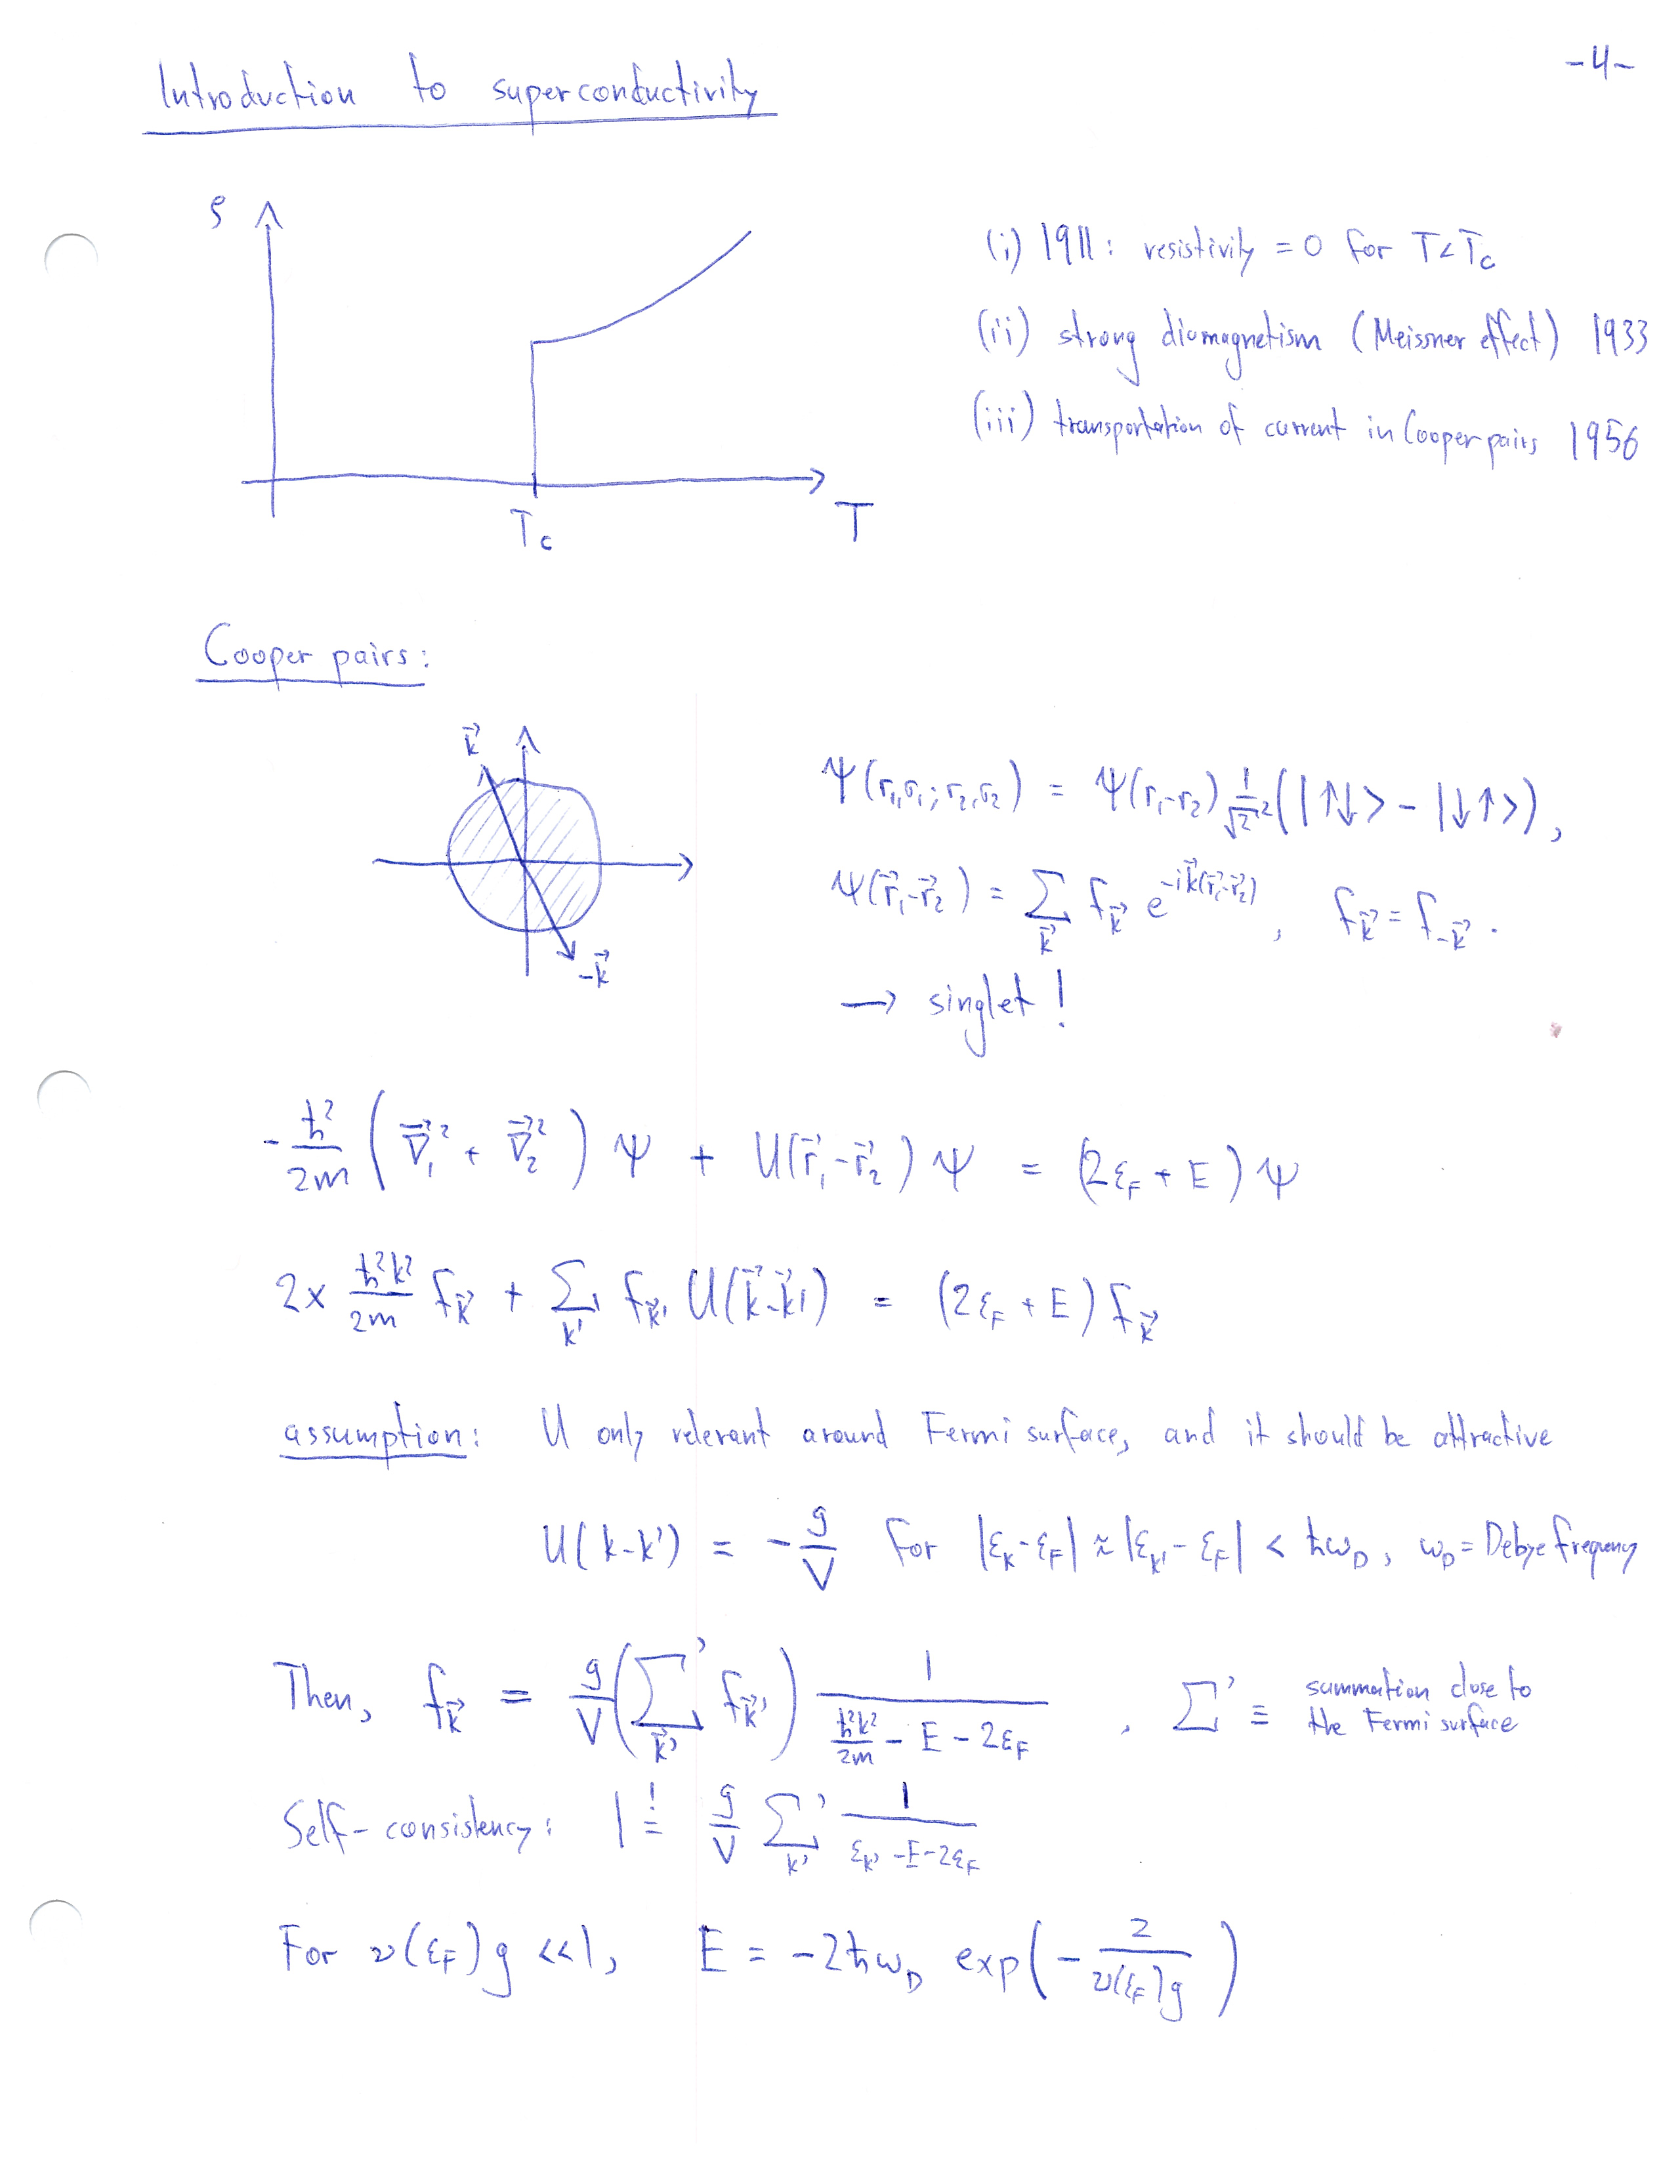 -4-
Introduction to superconductivity
ρ
T_c
T
(i) 1911: resistivity = 0 for T<T_c
(ii) strong diamagnetism (Meissner effect) 1933
(iii) transportation of current in Cooper pairs 1956
Cooper pairs:
k⃗
-k⃗
Ψ(r₁,σ₁; r₂,σ₂) = Ψ(r₁-r₂) 1/√2 (|↑↓> - |↓↑>),
Ψ(r⃗₁-r⃗₂) = Σ_k⃗ f_k⃗ e^{-ik⃗(r⃗₁-r⃗₂)}, f_k⃗ = f_-k⃗.
→ singlet!
-ħ²/2m (∇⃗₁² + ∇⃗₂²) Ψ + U(r⃗₁-r⃗₂) Ψ = (2ε_F + E) Ψ
2× ħ²k²/2m f_k⃗ + Σ_k' f_k⃗' U(k⃗-k⃗') = (2ε_F + E) f_k⃗
assumption: U only relevant around Fermi surface, and it should be attractive
U(k-k') = -g/V for |ε_k-ε_F| ≈ |ε_k'-ε_F| < ħω_D, ω_D = Debye frequency
Then, f_k⃗ = g/V (Σ'_k⃗' f_k⃗') 1/(ħ²k²/2m - E - 2ε_F), Σ' ≡ summation close to
the Fermi surface
Self-consistency: 1 =! g/V Σ'_k' 1/(ε_k' -E-2ε_F)
For ν(ε_F)g <<1, E = -2ħω_D exp(-2/(ν(ε_F)g))